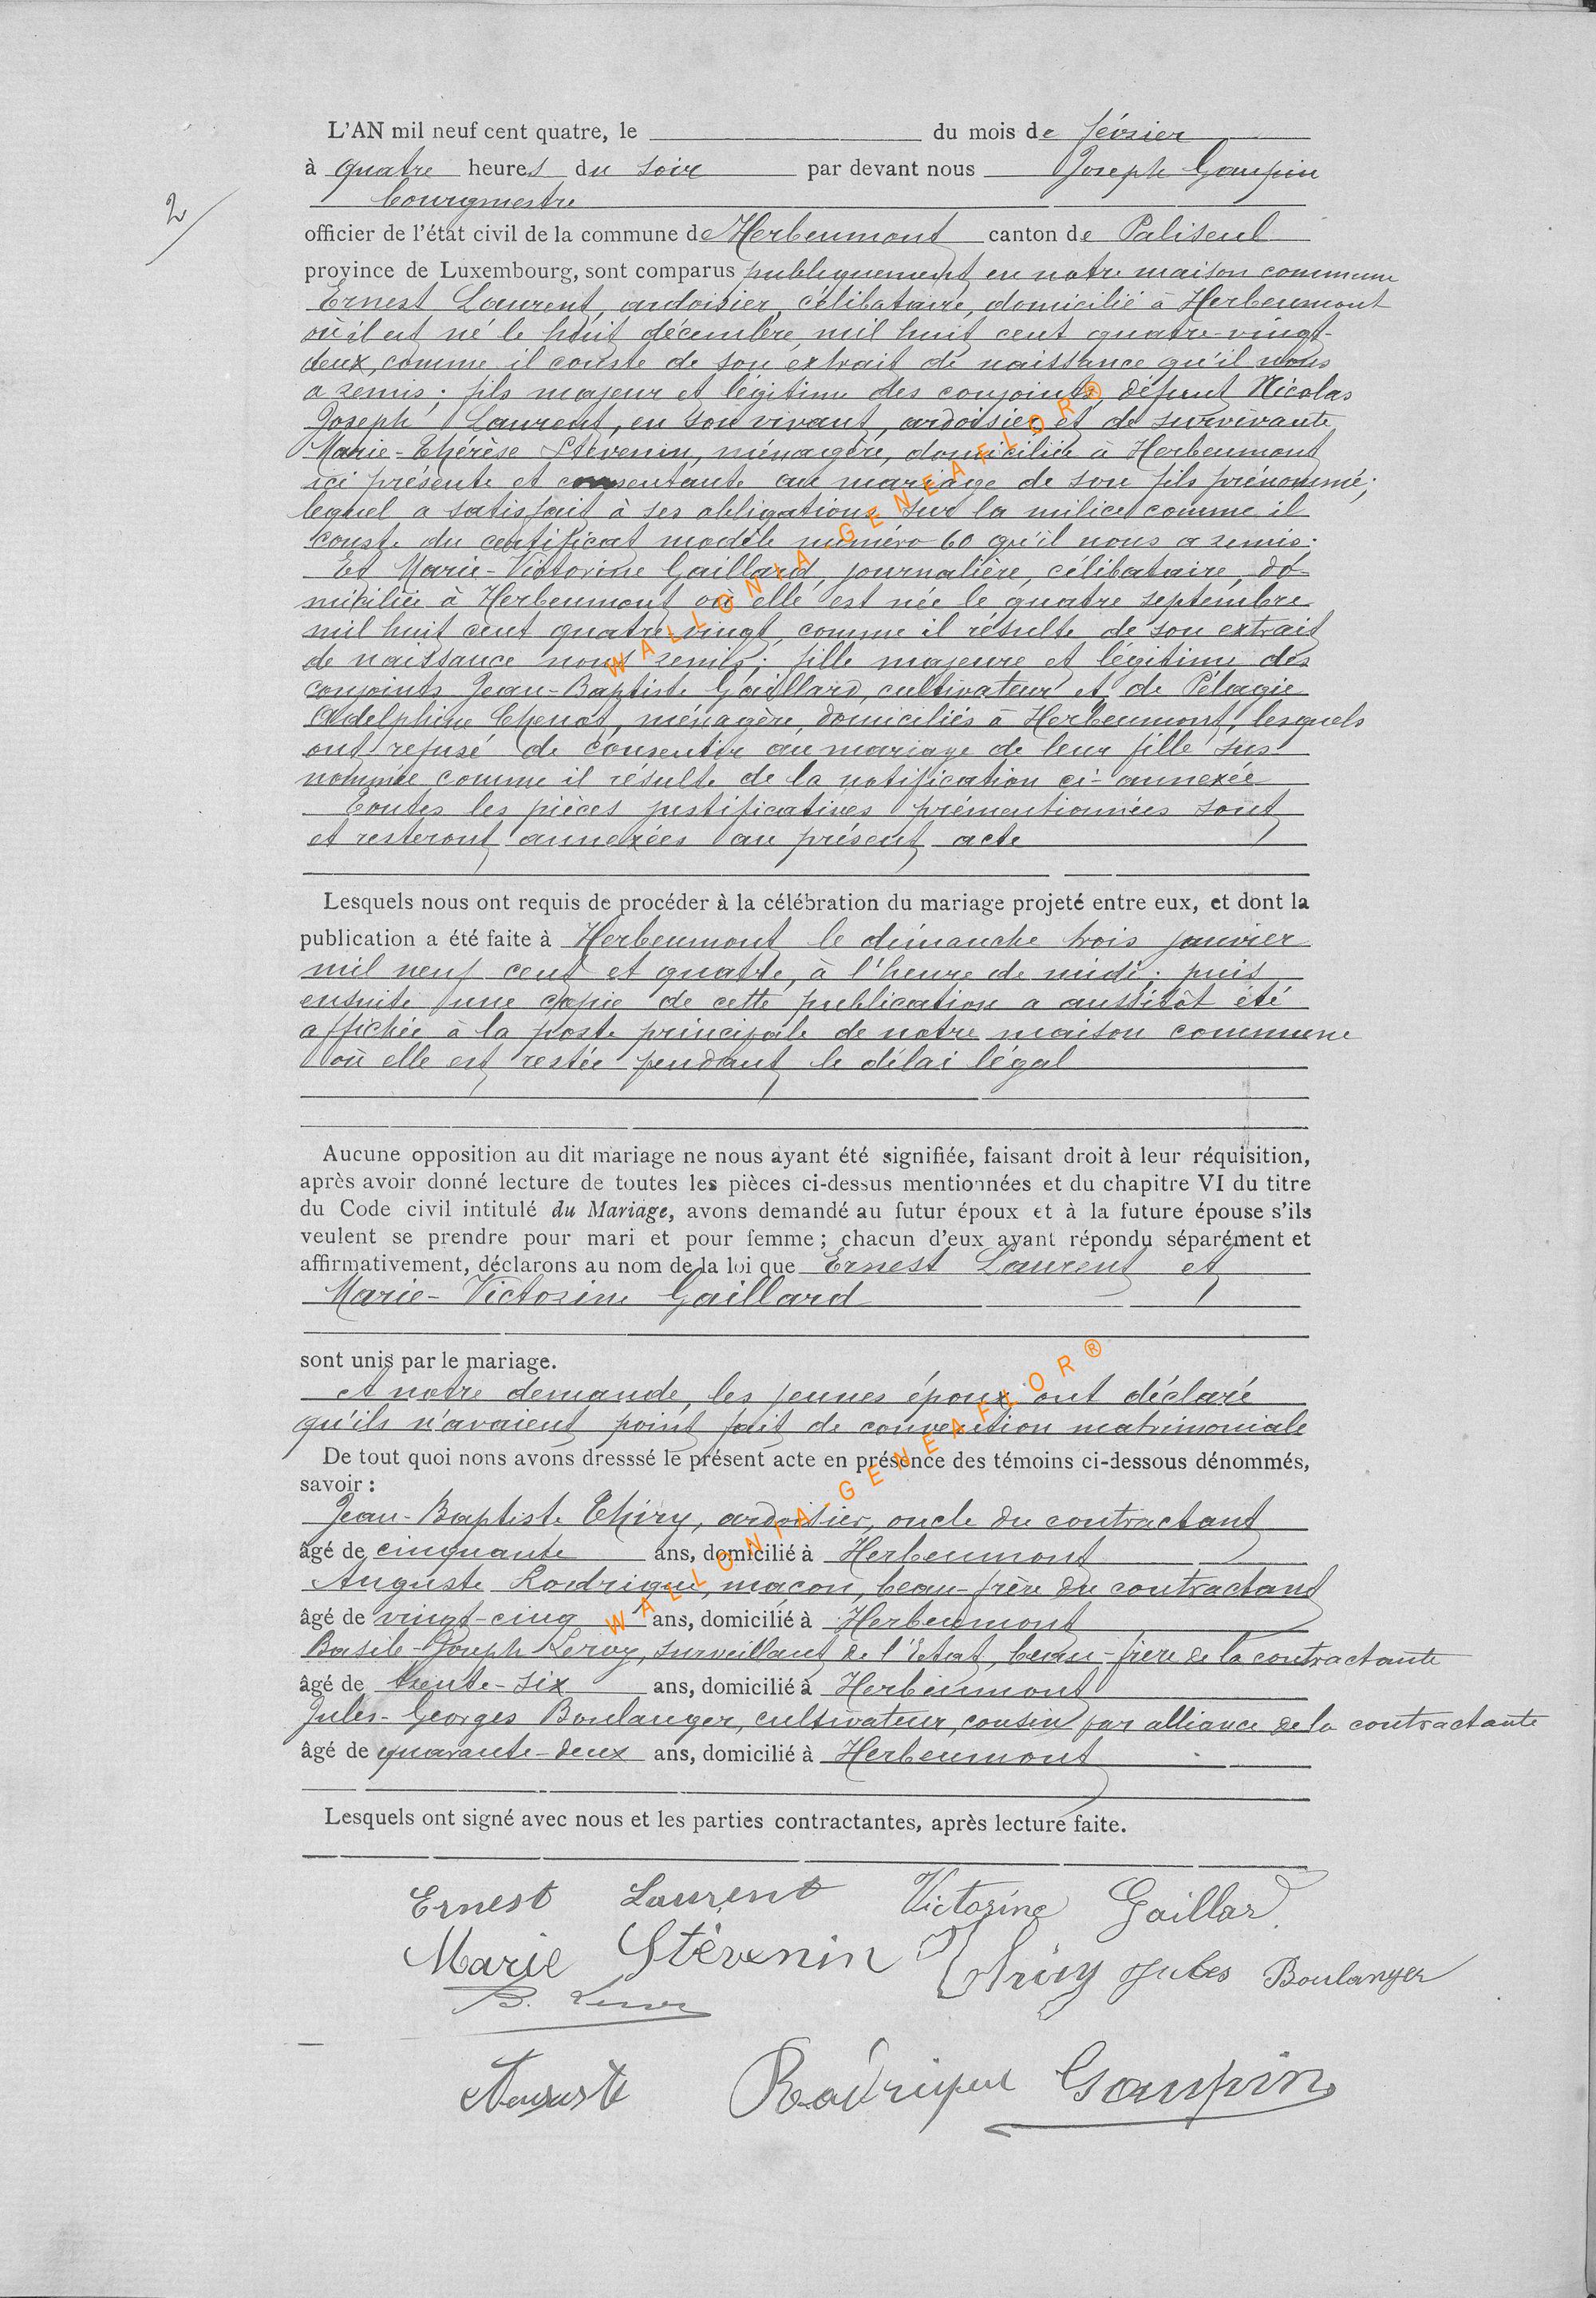 L'AN mil neuf cent quatre, le du mois de février
à quatre heures du soir par devant nous Joseph Gaupin
bourgmestre
2
officier de l'état civil de la commune de Herbeumont canton de Paliseul
province de Luxembourg, sont comparus publiquement en notre maison commune
Ernest Laurent, ardoisier, célibataire, domicilié à Herbeumont
où il est né le huit décembre mil huit cent quatre-vingt-
deux, comme il conste de son extrait de naissance qu'il nous
a remis; fils majeur et légitime des conjoints défunt Nicolas
Joseph Laurent, en son vivant, ardoisier et de survivante
Marie-Thérèse Stévenin, ménagère, domiciliée à Herbeumont
ici présente et consentante au mariage de son fils prénommé;
lequel a satisfait à ses obligations sur la milice comme il
conste du certificat modèle numéro 60 qu'il nous a remis.
Et Marie-Victorine Gaillard, journalière, célibataire, do-
miciliée à Herbeumont où elle est née le quatre septembre
mil huit cent quatre vingt, comme il résulte de son extrait
de naissance nous remis; fille majeure et légitime des
conjoints Jean-Baptiste Gaillard, cultivateur et de Pélagie
Adelphine Chenot, ménagère, domiciliés à Herbeumont, lesquels
ont refusé de consentir au mariage de leur fille sus
nommée comme il résulte de la notification ci-annexée
Toutes les pièces justificatives prémentionnées sont
et resteront annexées au présent acte
Lesquels nous ont requis de procéder à la célébration du mariage projeté entre eux, et dont la
publication a été faite à Herbeumont le dimanche trois janvier
mil neuf cent et quatre, à l'heure de midi; puis
ensuite une copie de cette publication a aussitôt été
affichée à la porte principale de notre maison commune
où elle est restée pendant le délai légal
Aucune opposition au dit mariage ne nous ayant été signifiée, faisant droit à leur réquisition,
après avoir donné lecture de toutes les pièces ci-dessus mentionnées et du chapitre VI du titre
du Code civil intitulé du Mariage, avons demandé au futur époux et à la future épouse s'ils
veulent se prendre pour mari et pour femme; chacun d'eux ayant répondu séparément et
affirmativement, déclarons au nom de la loi que Ernest Laurent et
Marie-Victorine Gaillard
sont unis par le mariage.
A notre demande, les jeunes époux ont déclaré
qu'ils n'avaient point fait de convention matrimoniale
De tout quoi nons avons dresssé le présent acte en présence des témoins ci-dessous dénommés,
savoir :
Jean-Baptiste Thiry, ardoisier, oncle du contractant
âgé de cinquante ans, domicilié à Herbeumont
Auguste Rodrigue, maçon, beau-frère du contractant
âgé de vingt-cinq ans, domicilié à Herbeumont
Basile-Joseph Leroy, surveillant de l'Etat, beau-frère de la contractante
âgé de trente-six ans, domicilié à Herbeumont
Jules-Georges Boulanger, cultivateur, cousin par alliance de la contractante
âgé de quarante-deux ans, domicilié à Herbeumont
Lesquels ont signé avec nous et les parties contractantes, après lecture faite.
Ernest Laurent Victorine Gaillard
Marie Stévenin Thiry Jules Boulanger
B. Leroy
Auguste Rodrigue Gaupin
WALLONIA-GENEAFLOR®
WALLONIA-GENEAFLOR®